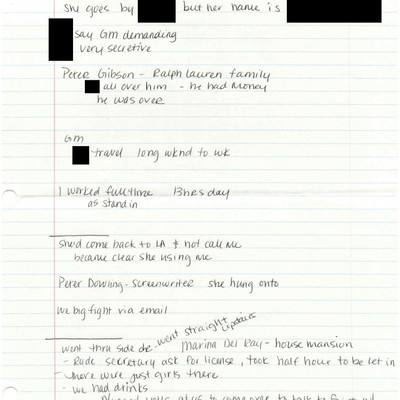 she goes by but her name is
say Gm demanding
very secretive
Peter Gibson - Ralph Lauren family
all over him - he had money
he was over
Gm
travel long wknd to wk
I worked fulltime 13hrs day
as stand in
she'd come back to LA & not call me
became clear she using me
Peter Dowling - screenwriter she hung onto
we big fight via email
went thru side dr - went straight upstairs
Marina Del Ray - house mansion
- Rude secretary ask for license, took half hour to be let in
- there were just girls there
- we had drinks
to come over to talk to